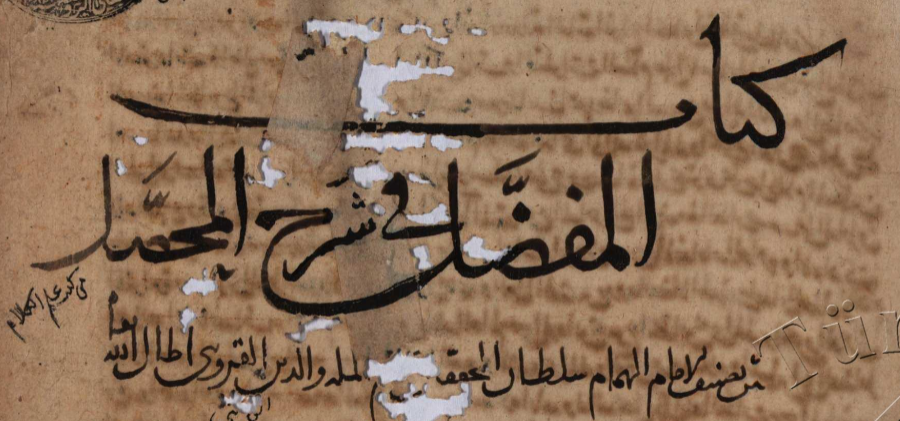 كتاب
المفصّل في شرح المحصّل
من كتب علم الكلام
من تصنيف الامام الهمام سلطان المحققين الملة والدين القزويني اطال الله بقاه
Tür